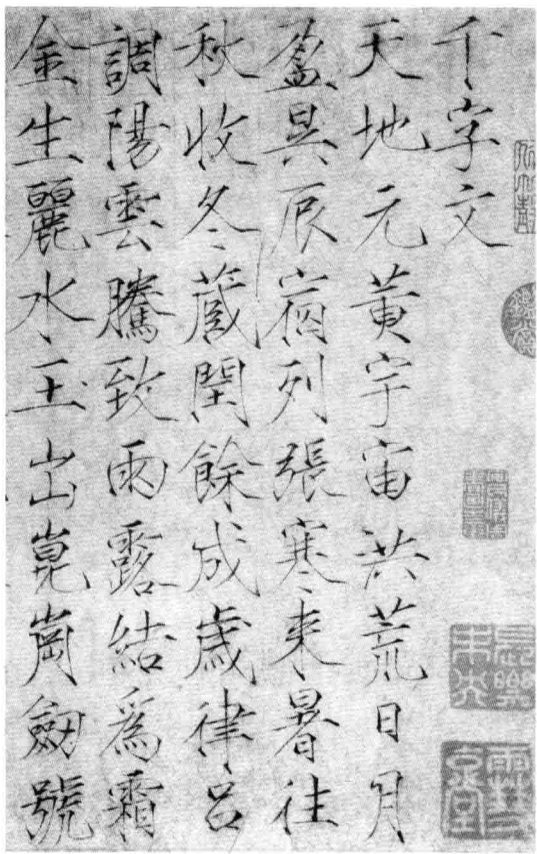 千字文
天地元黄宇宙洪荒日月
盈昃辰宿列張寒来暑往
秋收冬蔵閏餘成歲律呂
調陽雲騰致雨露結爲霜
金生麗水玉出崑崗劔號